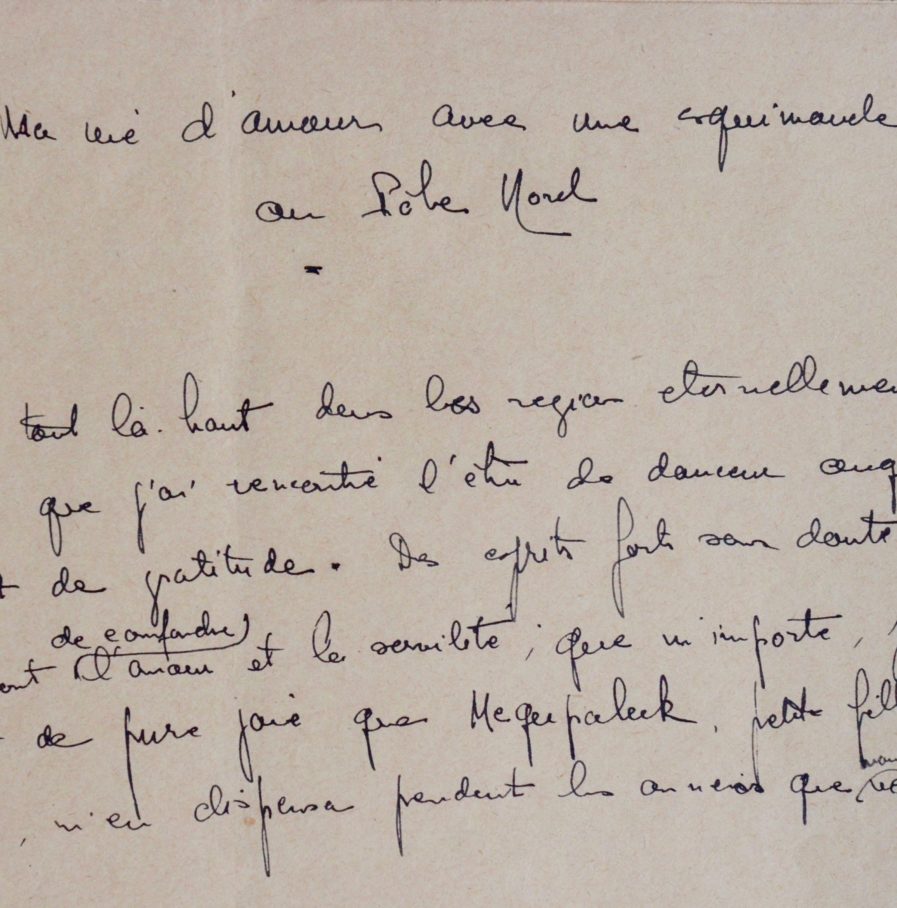 Ma vie d'amour avec une esquimaude
au Pôle Nord
tout là-haut dans les region eternellemen
que j'ai rencontré l'être de douceur
t de gratitude. Des esprits forts sans doute
de confondre
ont l'amour et la servilité ; que m'importe,
de pure joie que Megupaleek, petite fill
, m'en dispensa pendant les années que